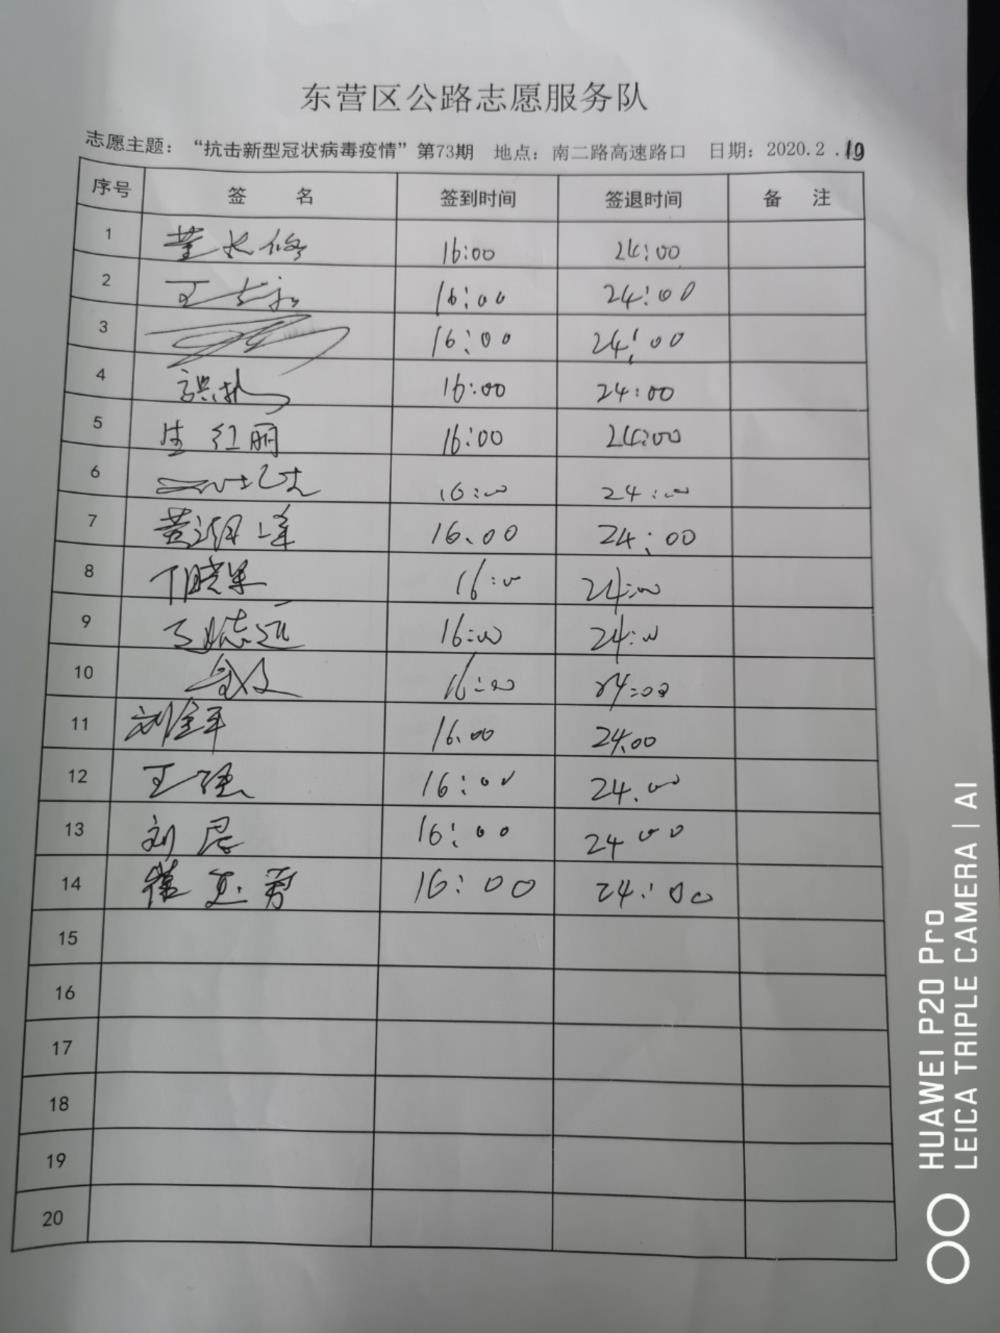 东营区公路志愿服务队
志愿主题：“抗击新型冠状病毒疫情”第73期 地点：南二路高速路口 日期：2020.2.19
序号 签 名 签到时间 签退时间 备 注
1 董长修 16:00 24:00
2 王志 16:00 24:00
3 16:00 24:00
4 16:00 24:00
5 生红丽 16:00 24:00
6 16:00 24:00
7 黄 峰 16.00 24:00
8 丁晓军 16:00 24:00
9 志远 16:00 24:00
10 16:00 24:00
11 刘金平 16.00 24.00
12 王强 16:00 24.00
13 刘磊 16:00 24 00
14 崔 勇 16:00 24:00
15
16
17
18
19
20
HUAWEI P20 Pro
LEICA TRIPLE CAMERA | AI